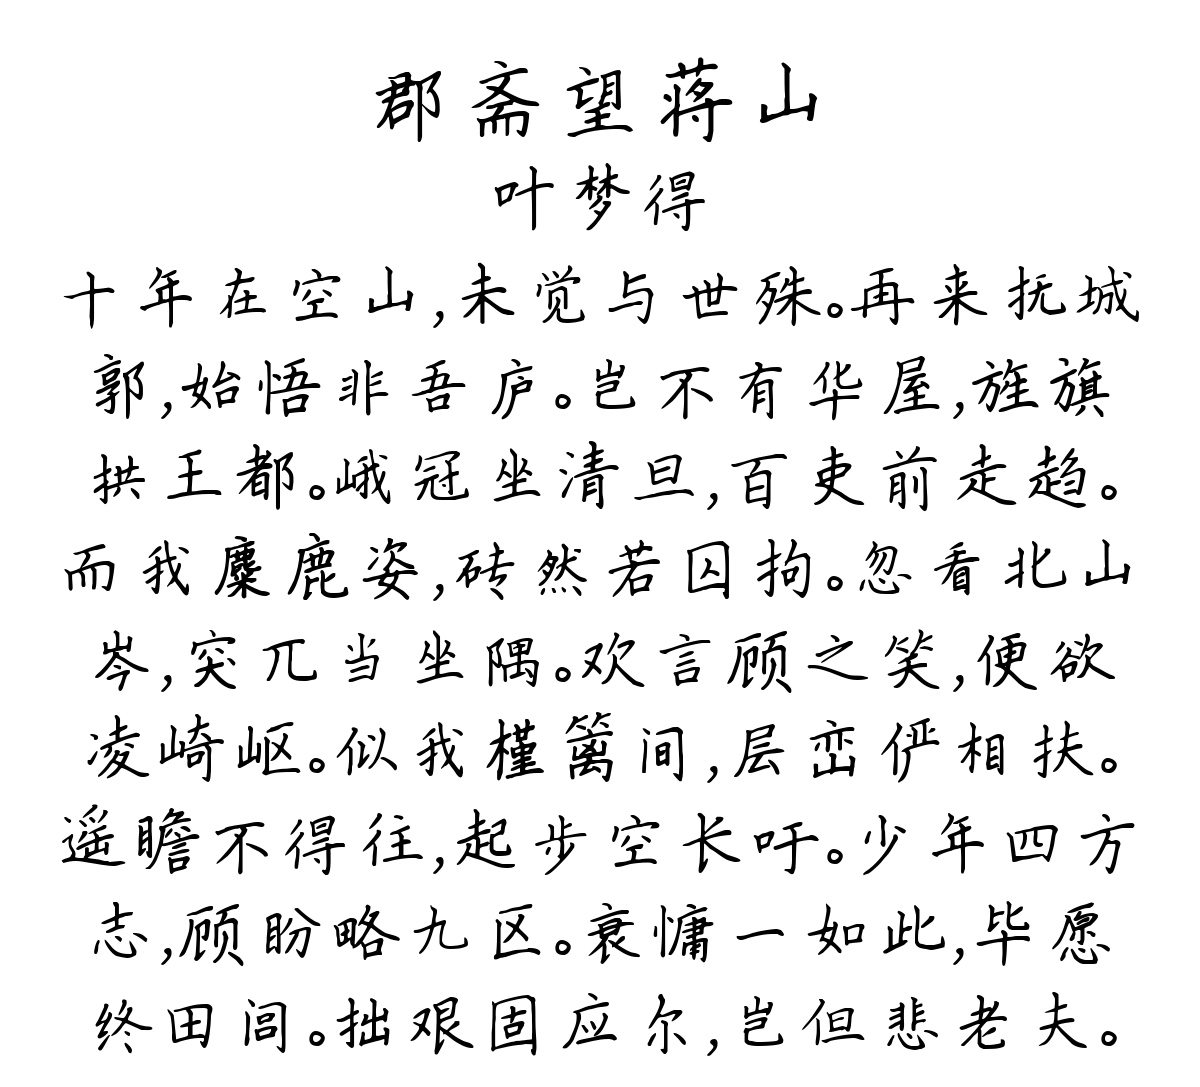 郡斋望蒋山
叶梦得
十年在空山,未觉与世殊。再来抚城
郭,始悟非吾庐。岂不有华屋,旌旗
拱王都。峨冠坐清旦,百吏前走趋。
而我麋鹿姿,砖然若囚拘。忽看北山
岑,突兀当坐隅。欢言顾之笑,便欲
凌崎岖。似我槿篱间,层峦俨相扶。
遥瞻不得往,起步空长吁。少年四方
志,顾盼略九区。衰慵一如此,毕愿
终田闾。拙艰固应尔,岂但悲老夫。